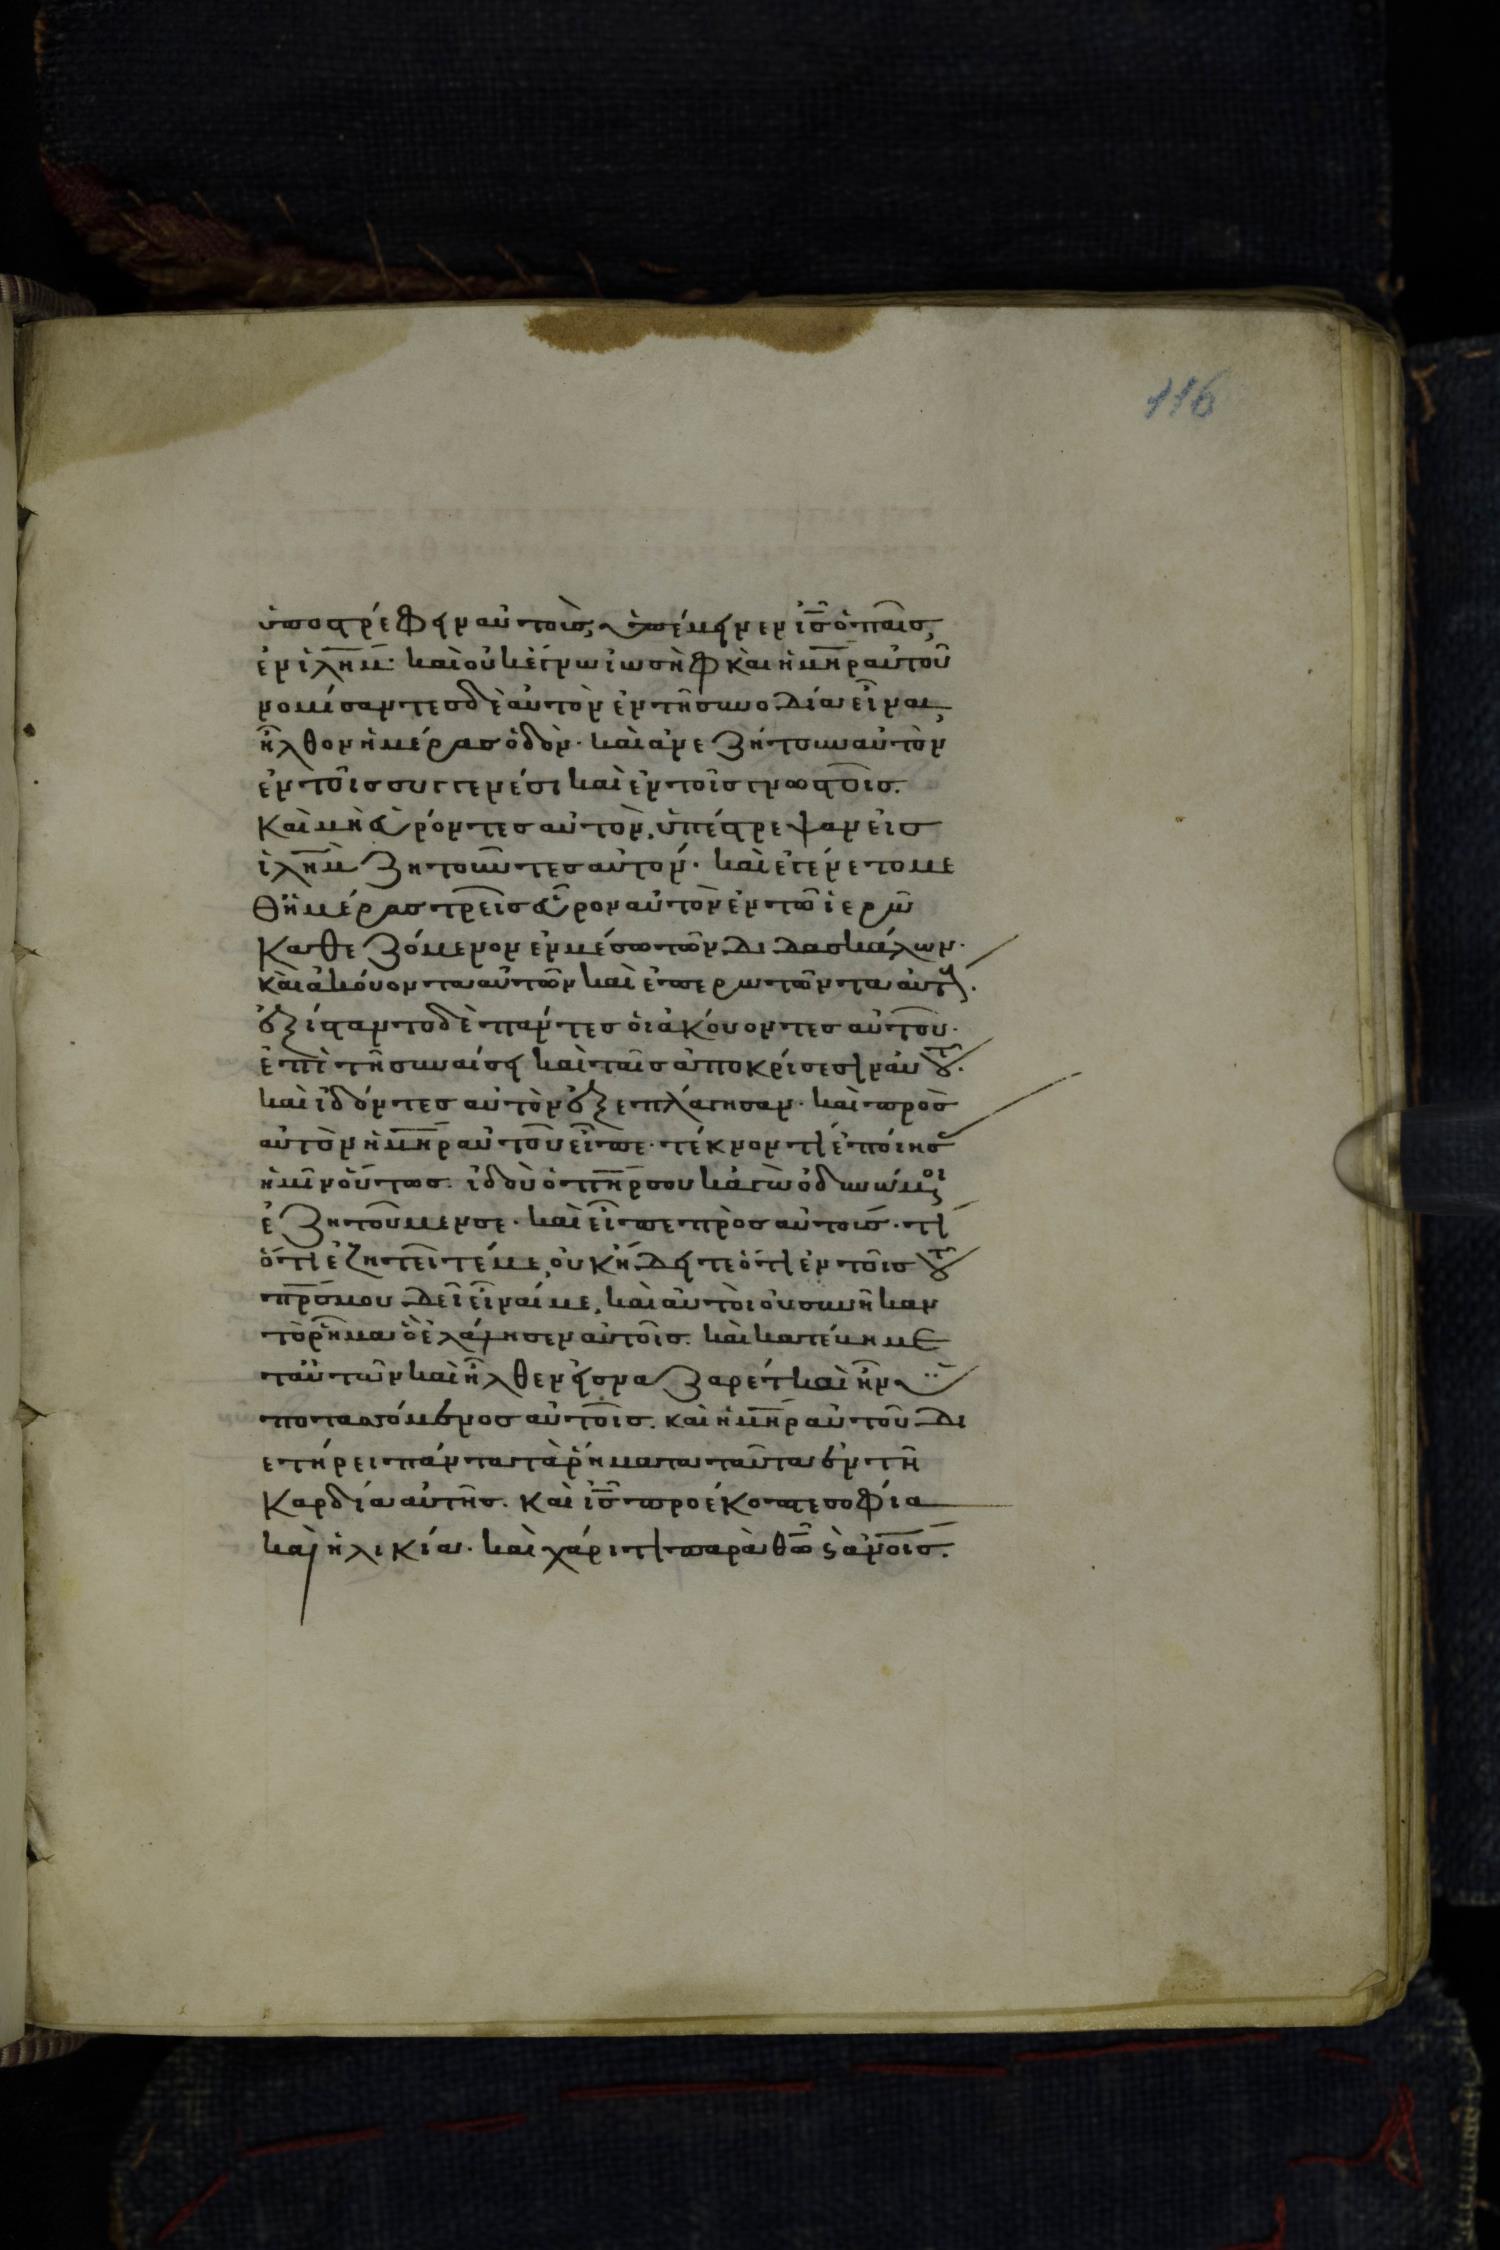 116
ὑποστρέφειν αὐτοὺς, ὑπέμεινεν ἰς̅ ὁ παῖς,
ἐν ἰλημ̅· καὶ οὐκ ἔγνω ἰωσὴφ καὶ ἡ μηρ̅ αὐτοῦ
νομίσαντες δὲ αὐτὸν ἐν τῆ συνοδία εἶναι,
ἦλθον ἡμέρας ὁδὸν· καὶ ἀνεζήτουν αὐτὸν
ἐν τοῖς συγγενέσι καὶ ἐν τοῖς γνωστοῖς.
Καὶ μὴ εὑρόντες αὐτὸν, ὑπέστρεψαν εἰς
ἰλημ̅ ζητοῦντες αὐτόν· καὶ ἐγένετο με
θἡμέρας τρεῖς εὗρον αὐτὸν ἐν τῶ ἱερῶ
Καθεζόμενον ἐν μέσω τῶν διδασκάλων·
καὶ ἀκούοντα αὐτῶν καὶ ἐπερωτῶντα αὐτούς.
ἐξίσταντο δὲ πάντες οἱ ἀκούοντες αὐτοῦ·
ἐπὶ τῆ συνέσει καὶ ταῖς ἀποκρίσεσιν αὐτοῦ.
καὶ ἰδόντες αὐτὸν ἐξεπλάγησαν· καὶ πρὸς
αὐτὸν ἡ μηρ̅ αὐτοῦ εἶπε· τέκνον τί ἐποίησας
ἡμῖν οὕτως. ἰδοὺ ὁ πηρ̅ σου κἀγὼ ὀδυνώμενοι
ἐζητοῦμεν σε· καὶ εἶπε πρὸς αὐτούς· τί
ὅτι ἐζητεῖτέ με, οὐκ ἤδειτε ὅτι ἐν τοῖς τοῦ
πρς̅ μου δεῖ εἶναί με, καὶ αὐτοὶ οὐ συνῆκαν
τὸ ῥῆμα ὃ ἐλάλησεν αὐτοῖς. καὶ κατέβη με
ταὐτῶν καὶ ἦλθεν εἰς ναζαρέτ καὶ ἦν ὑ
ποτασσόμενος αὐτοῖς. καὶ ἡ μηρ̅ αὐτοῦ δι
ετήρει πάντα τὰ ῥήματα ταῦτα ἐν τῆ
Καρδία αὐτῆς. Καὶ ἰς̅ προέκοπτε σοφία
καὶ ἡλικία· καὶ χάριτι παρὰ θω̅ ϗ ἀνοις̅.